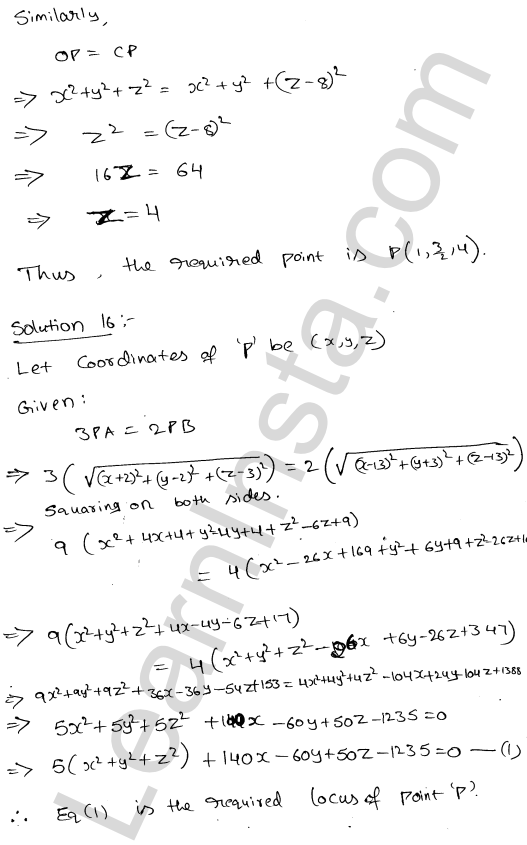 Similarly,
OP = CP
⇒ x²+y²+z² = x²+y²+(z-8)²
⇒ z² = (z-8)²
⇒ 16z = 64
⇒ z = 4
Thus, the required point is P(1, 3/2, 4).
Solution 16:-
Let coordinates of 'P' be (x,y,z)
Given:
3PA = 2PB
⇒ 3(√(x+2)²+(y-2)²+(z-3)²) = 2(√(x-13)²+(y+3)²+(z-13)²)
Squaring on both sides.
⇒ 9(x²+4x+4+y²-4y+4+z²-6z+9)
= 4(x²-26x+169+y²+6y+9+z²-26z+16
⇒ 9(x²+y²+z²+4x-4y-6z+17)
= 4(x²+y²+z²-26x+6y-26z+347)
⇒ 9x²+9y²+9z²+36x-36y-54z+153=4x²+4y²+4z²-104x+24y-104z+1388
⇒ 5x²+5y²+5z²+140x-60y+50z-1235=0
⇒ 5(x²+y²+z²)+140x-60y+50z-1235=0 — (1)
∴ Eq(1) is the required locus of point 'P'.
LearnInsta.com